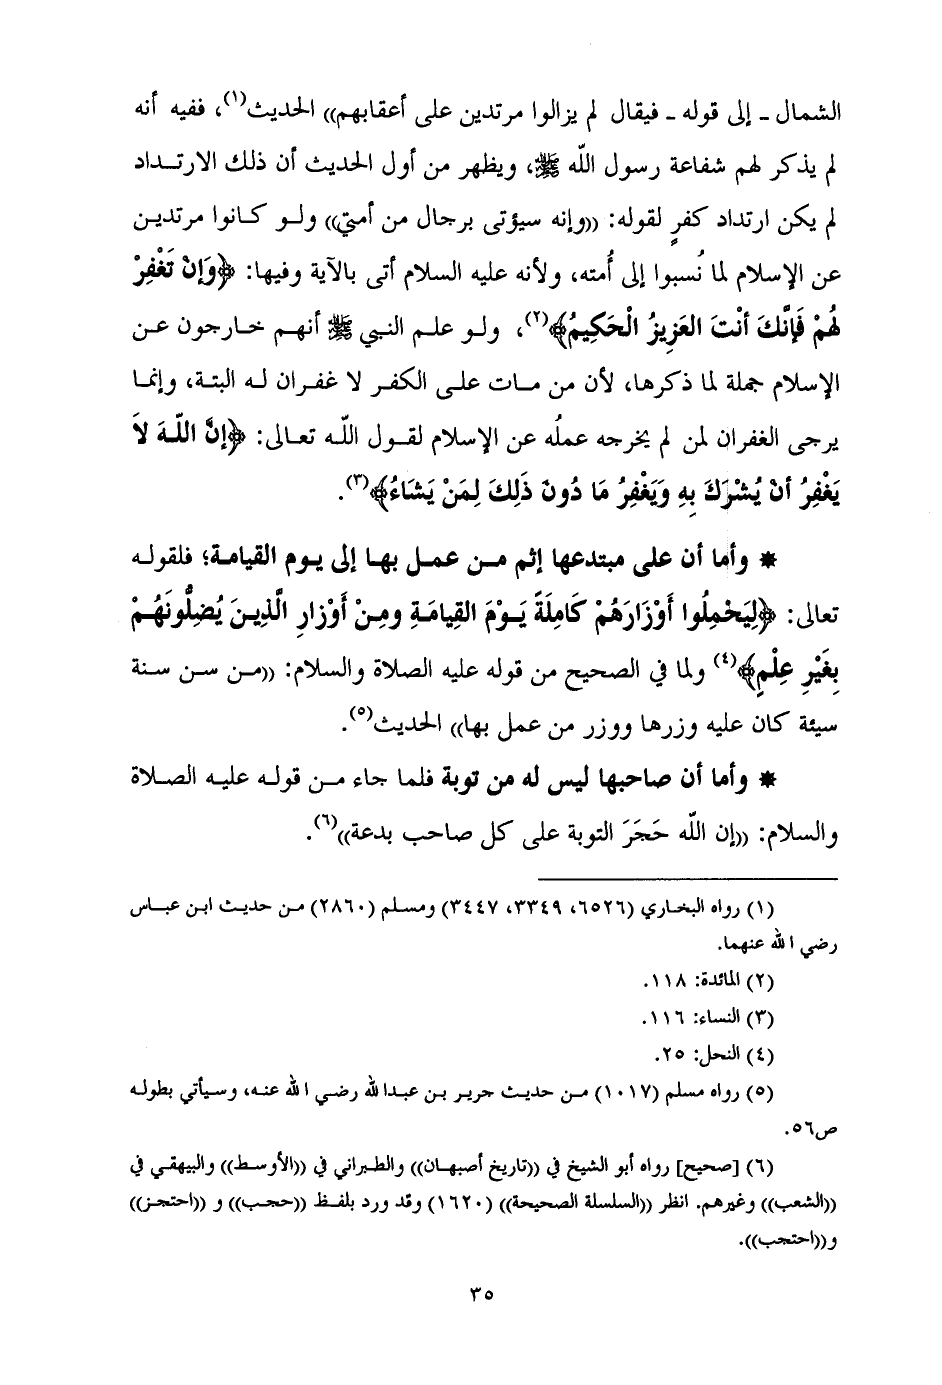 الشمال ـ إلى قوله ـ فيقال لم يزالوا مرتدين على أعقابهم)) الحديث(١)، ففيه أنه
لم يذكر لهم شفاعة رسول اللّه ﷺ، ويظهر من أول الحديث أن ذلك الارتداد
لم يكن ارتداد كفرٍ لقوله: ((وإنه سيؤتى برجال من أمتي)) ولو كانوا مرتدين
عن الإسلام لما نُسبوا إلى أُمته، ولأنه عليه السلام أتى بالآية وفيها: ﴿وَإِنْ تَغْفِرْ
لَهُمْ فَإِنَّكَ أَنْتَ العَزِيزُ الْحَكِيمُ﴾(٢)، ولو علم النبي ﷺ أنهم خارجون عن
الإسلام جملة لما ذكرها، لأن من مات على الكفر لا غفران له البتة، وإنما
يرجى الغفران لمن لم يخرجه عملُه عن الإسلام لقول اللّه تعالى: ﴿إِنَّ اللّهَ لاَ
يَغْفِرُ أَنْ يُشْرَكَ بِهِ وَيَغْفِرُ مَا دُونَ ذَلِكَ لِمَنْ يَشَاءُ﴾(٣).
* وأما أن على مبتدعها إثم من عمل بها إلى يوم القيامة؛ فلقوله
تعالى: ﴿لِيَحْمِلُوا أَوْزَارَهُمْ كَامِلَةً يَوْمَ القِيَامَةِ ومِنْ أَوْزَارِ الَّذِينَ يُضِلُّونَهُمْ
بِغَيْرِ عِلْمٍ﴾(٤) ولما في الصحيح من قوله عليه الصلاة والسلام: ((من سن سنة
سيئة كان عليه وزرها ووزر من عمل بها)) الحديث(٥).
* وأما أن صاحبها ليس له من توبة فلما جاء من قوله عليه الصلاة
والسلام: ((إن اللّه حَجَرَ التوبة على كل صاحب بدعة))(٦).
(١) رواه البخاري (٦٥٢٦، ٣٣٤٩، ٣٤٤٧) ومسلم (٢٨٦٠) من حديث ابن عباس
رضي الله عنهما.
(٢) المائدة: ١١٨.
(٣) النساء: ١١٦.
(٤) النحل: ٢٥.
(٥) رواه مسلم (١٠١٧) من حديث جرير بن عبدالله رضي الله عنه، وسيأتي بطوله
ص٥٦.
(٦) [صحيح] رواه أبو الشيخ في ((تاريخ أصبهان)) والطبراني في ((الأوسط)) والبيهقي في
((الشعب)) وغيرهم. انظر ((السلسلة الصحيحة)) (١٦٢٠) وقد ورد بلفظ ((حجب)) و ((احتجز))
و((احتجب)).
٣٥